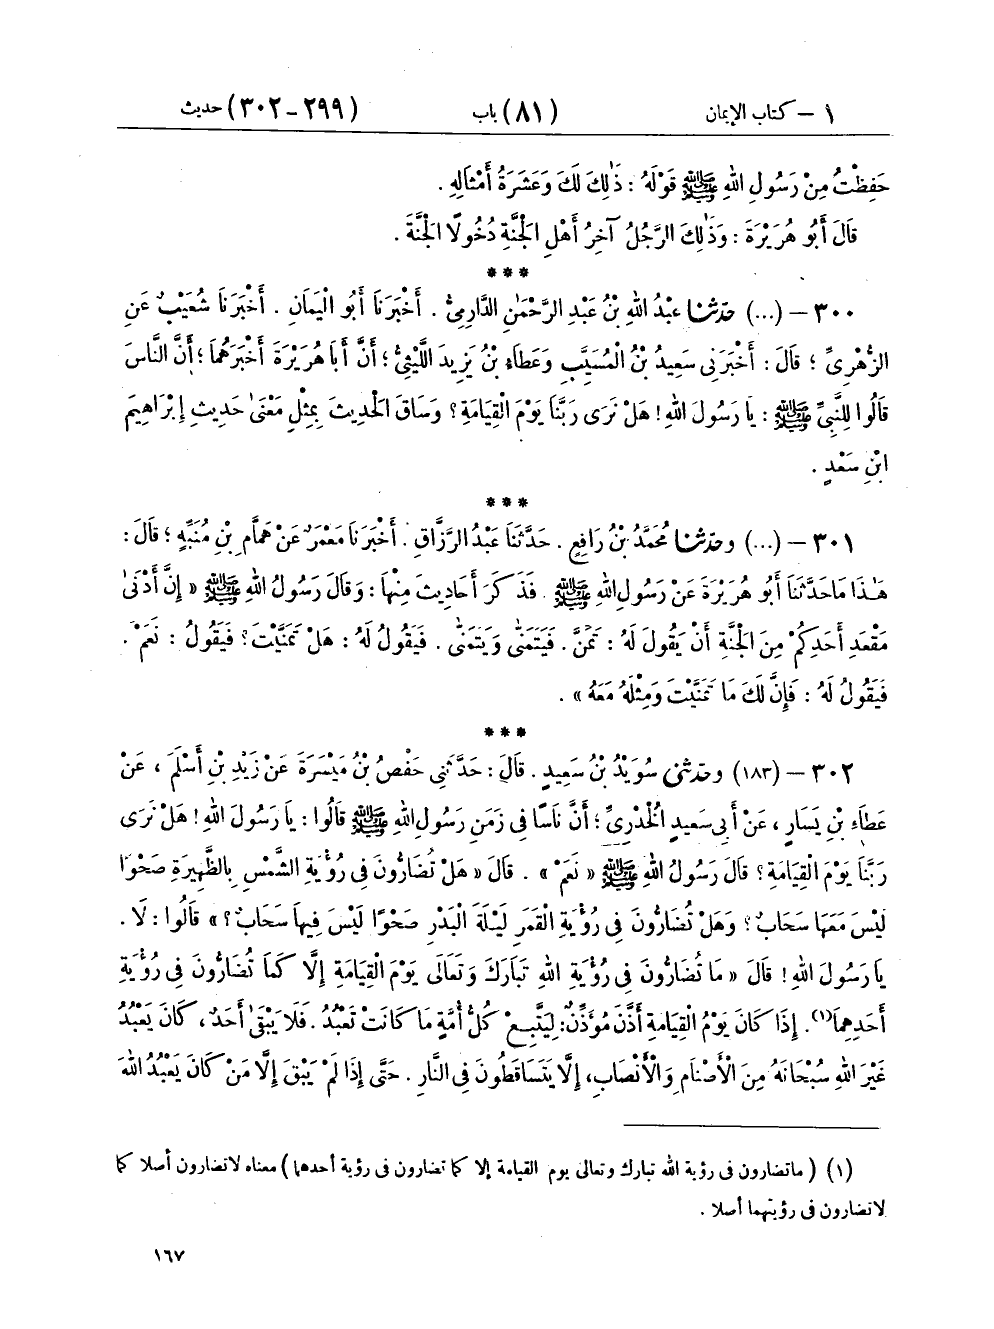 ١ – كتاب الإيمان (٨١) باب (٢٩٩–٣٠٢) حديث
حَفِظْتُ مِنْ رَسُولِ اللهِ ﷺ قَوْلَهُ : ذَٰلِكَ لَكَ وَعَشَرَةُ أَمْثَالِهِ .
قَالَ أَبُو هُرَيْرَةَ : وَذَٰلِكَ الرَّجُلُ آخِرُ أَهْلِ الْجَنَّةِ دُخُولًا الْجَنَّةَ .
***
٣٠٠ – (...) حَدَّثَنَا عَبْدُ اللهِ بْنُ عَبْدِ الرَّحْمَٰنِ الدَّارِمِيُّ . أَخْبَرَنَا أَبُو الْيَمَانِ . أَخْبَرَنَا شُعَيْبٌ عَنِ
الزُّهْرِيِّ ؛ قَالَ : أَخْبَرَنِي سَعِيدُ بْنُ الْمُسَيَّبِ وَعَطَاءُ بْنُ يَزِيدَ اللَّيْثِيُّ ؛ أَنَّ أَبَا هُرَيْرَةَ أَخْبَرَهُمَا ؛ أَنَّ النَّاسَ
قَالُوا لِلنَّبِيِّ ﷺ : يَا رَسُولَ اللهِ ! هَلْ نَرَى رَبَّنَا يَوْمَ الْقِيَامَةِ ؟ وَسَاقَ الْحَدِيثَ بِمِثْلِ مَعْنَىٰ حَدِيثِ إِبْرَاهِيمَ
ابْنِ سَعْدٍ .
***
٣٠١ – (...) وَحَدَّثَنَا مُحَمَّدُ بْنُ رَافِعٍ . حَدَّثَنَا عَبْدُ الرَّزَّاقِ . أَخْبَرَنَا مَعْمَرٌ عَنْ هَمَّامِ بْنِ مُنَبِّهٍ ؛ قَالَ :
هَٰذَا مَا حَدَّثَنَا أَبُو هُرَيْرَةَ عَنْ رَسُولِ اللهِ ﷺ . فَذَكَرَ أَحَادِيثَ مِنْهَا : وَقَالَ رَسُولُ اللهِ ﷺ « إِنَّ أَدْنَىٰ
مَقْعَدِ أَحَدِكُمْ مِنَ الْجَنَّةِ أَنْ يَقُولَ لَهُ : تَمَنَّ . فَيَتَمَنَّىٰ وَيَتَمَنَّىٰ . فَيَقُولُ لَهُ : هَلْ تَمَنَّيْتَ ؟ فَيَقُولُ : نَعَمْ .
فَيَقُولُ لَهُ : فَإِنَّ لَكَ مَا تَمَنَّيْتَ وَمِثْلَهُ مَعَهُ » .
***
٣٠٢ – (١٨٣) وَحَدَّثَنِي سُوَيْدُ بْنُ سَعِيدٍ . قَالَ : حَدَّثَنِي حَفْصُ بْنُ مَيْسَرَةَ عَنْ زَيْدِ بْنِ أَسْلَمَ ، عَنْ
عَطَاءِ بْنِ يَسَارٍ ، عَنْ أَبِي سَعِيدٍ الْخُدْرِيِّ ؛ أَنَّ نَاسًا فِي زَمَنِ رَسُولِ اللهِ ﷺ قَالُوا : يَا رَسُولَ اللهِ ! هَلْ نَرَى
رَبَّنَا يَوْمَ الْقِيَامَةِ ؟ قَالَ رَسُولُ اللهِ ﷺ « نَعَمْ » . قَالَ « هَلْ تُضَارُّونَ فِي رُؤْيَةِ الشَّمْسِ بِالظَّهِيرَةِ صَحْوًا
لَيْسَ مَعَهَا سَحَابٌ ؟ وَهَلْ تُضَارُّونَ فِي رُؤْيَةِ الْقَمَرِ لَيْلَةَ الْبَدْرِ صَحْوًا لَيْسَ فِيهَا سَحَابٌ ؟ » قَالُوا : لَا .
يَا رَسُولَ اللهِ ! قَالَ « مَا تُضَارُّونَ فِي رُؤْيَةِ اللهِ تَبَارَكَ وَتَعَالَى يَوْمَ الْقِيَامَةِ إِلَّا كَمَا تُضَارُّونَ فِي رُؤْيَةِ
أَحَدِهِمَا(١) . إِذَا كَانَ يَوْمُ الْقِيَامَةِ أَذَّنَ مُؤَذِّنٌ: لِيَتَّبِعْ كُلُّ أُمَّةٍ مَا كَانَتْ تَعْبُدُ . فَلَا يَبْقَىٰ أَحَدٌ ، كَانَ يَعْبُدُ
غَيْرَ اللهِ سُبْحَانَهُ مِنَ الْأَصْنَامِ وَالْأَنْصَابِ، إِلَّا يَتَسَاقَطُونَ فِي النَّارِ . حَتَّى إِذَا لَمْ يَبْقَ إِلَّا مَنْ كَانَ يَعْبُدُ اللهَ
(١) ( ماتضارون في رؤية الله تبارك وتعالى يوم القيامة إلا كما تضارون في رؤية أحدهما ) معناه لاتضارون أصلا كما
لاتضارون في رؤيتهما أصلا .
١٦٧